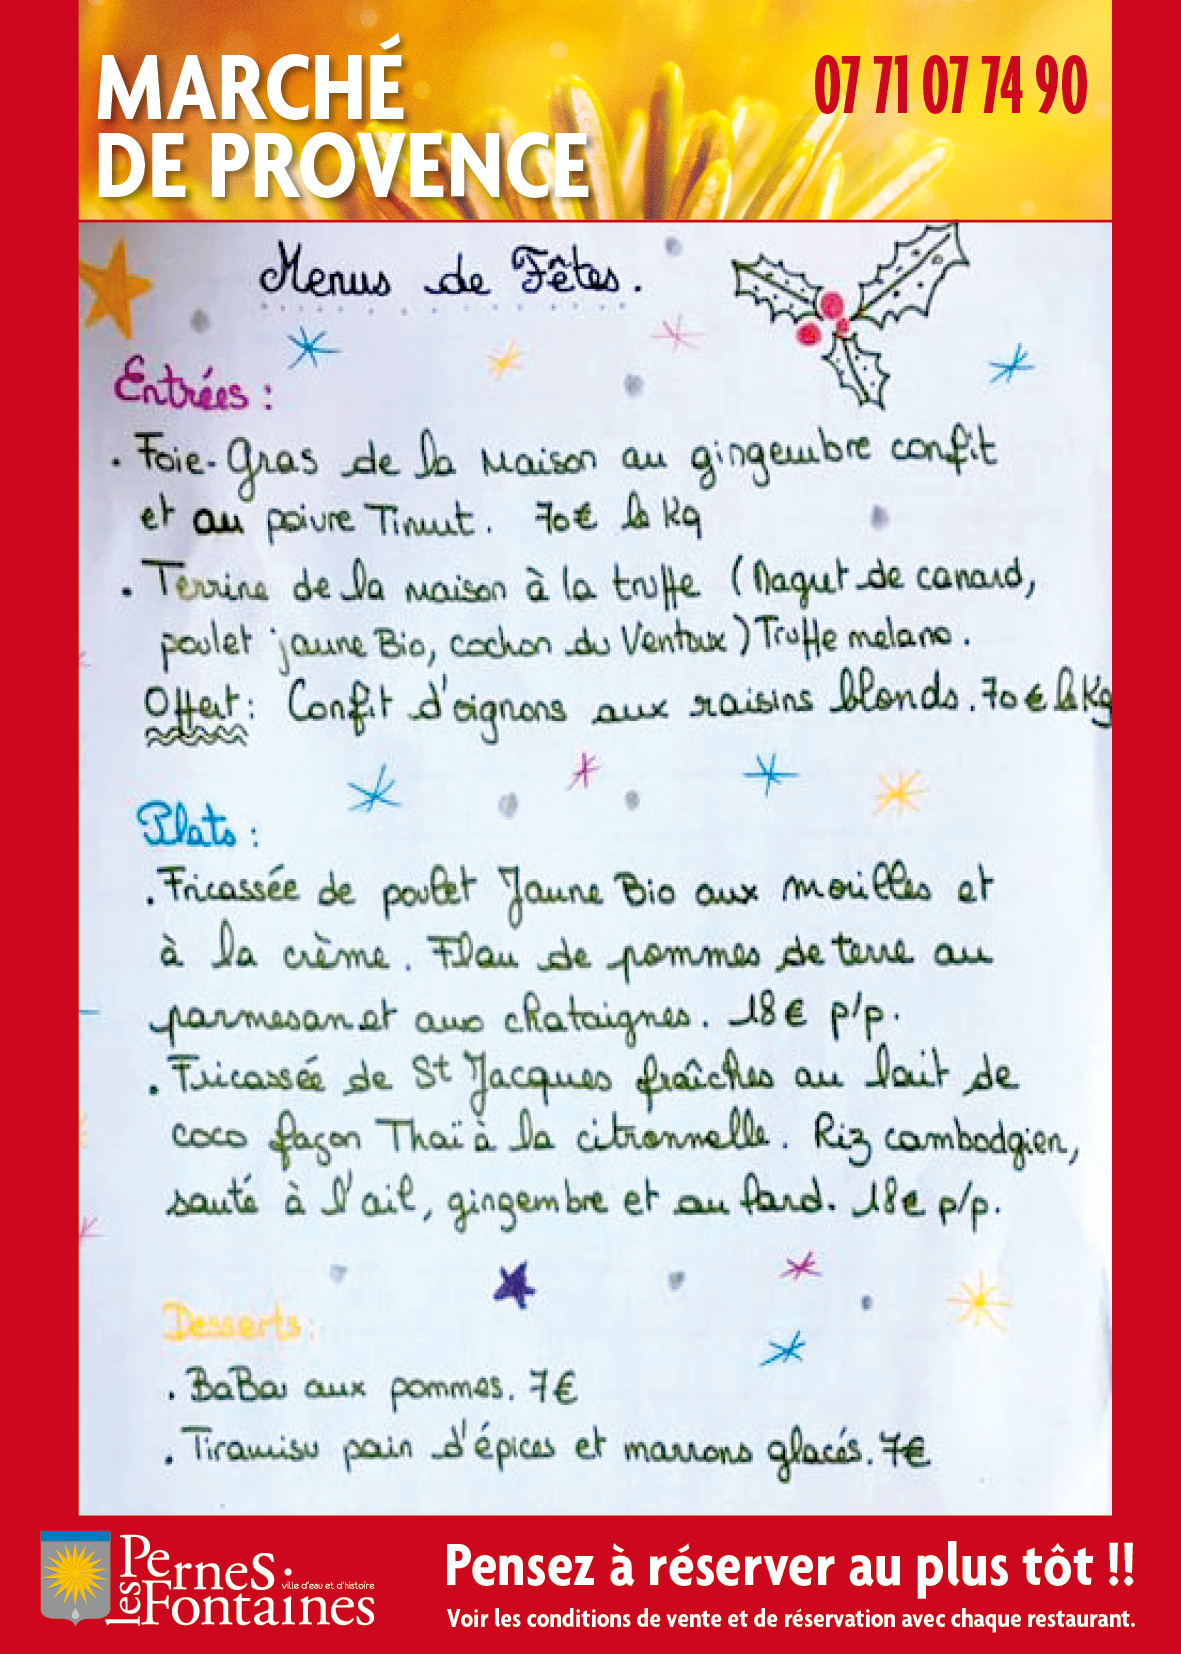 MARCHÉ
DE PROVENCE
07 71 07 74 90
Menus de Fêtes.
Entrées :
. Foie-Gras de la Maison au gingembre confit
et au poivre Timut. 70€ le Kg
. Terrine de la maison à la truffe (Magret de canard,
poulet jaune Bio, cochon du Ventoux) Truffe melano.
Offert : Confit d'oignons aux raisins blonds. 70€ le Kg
Plats :
. Fricassée de poulet Jaune Bio aux morilles et
à la crème. Flan de pommes de terre au
parmesan et aux chataignes. 18€ p/p.
. Fricassée de St Jacques fraîches au lait de
coco façon Thaï à la citronnelle. Riz cambodgien,
sauté à l'ail, gingembre et au lard. 18€ p/p.
Desserts :
. BaBa aux pommes. 7€
. Tiramisu pain d'épices et marrons glacés. 7€
Pernes.
les Fontaines
ville d'eau et d'histoire
Pensez à réserver au plus tôt !!
Voir les conditions de vente et de réservation avec chaque restaurant.